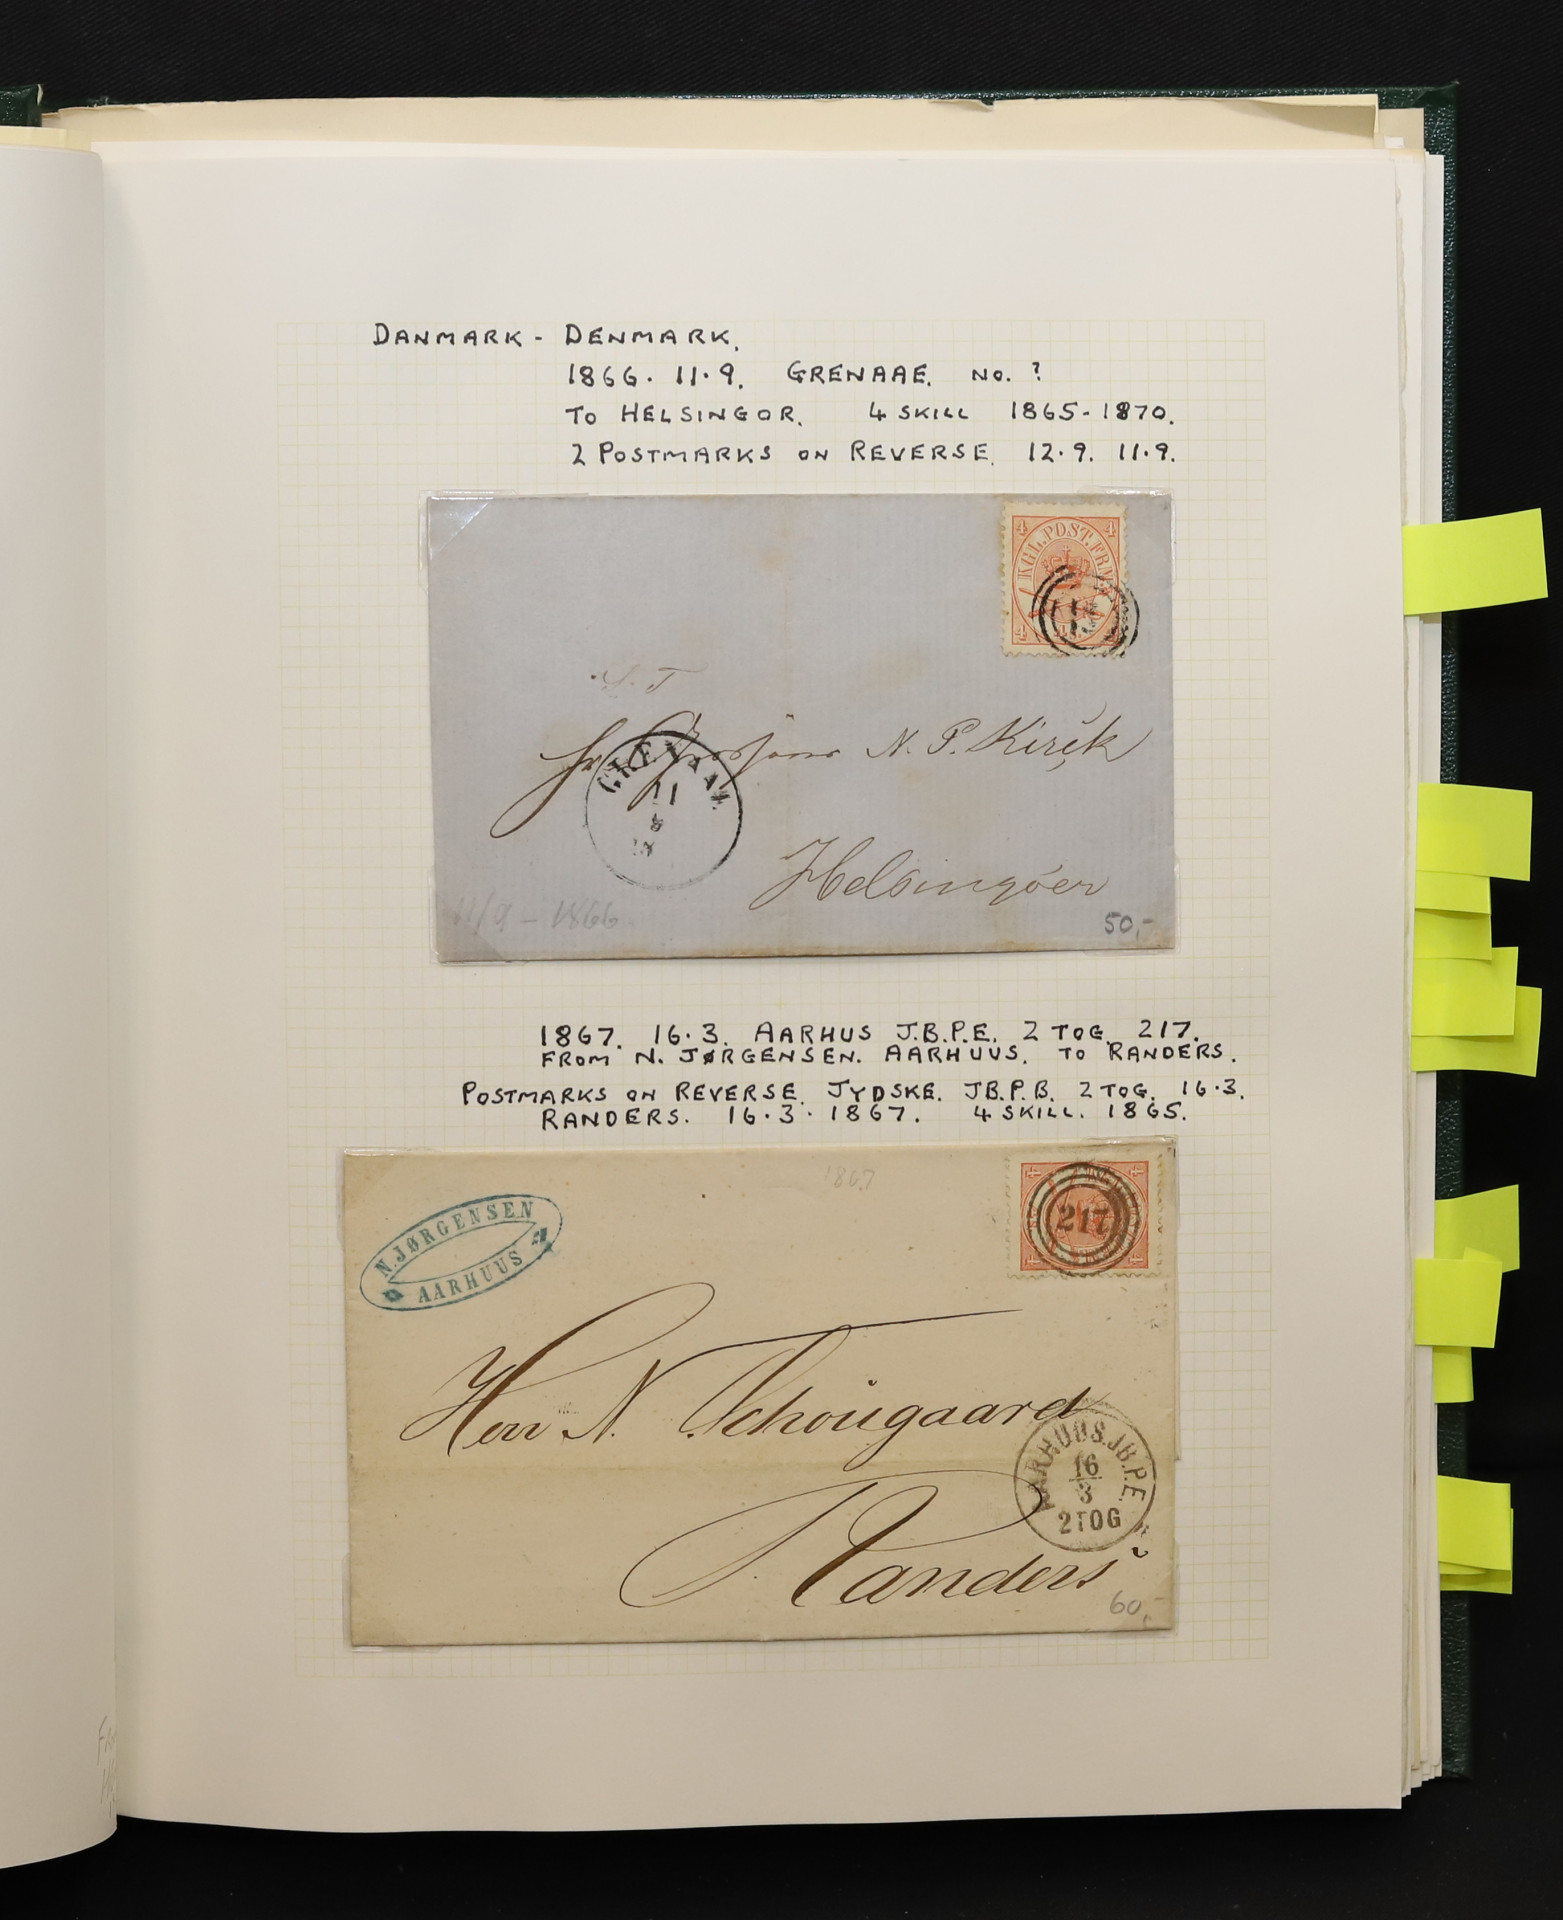 DANMARK - DENMARK.
1866. 11.9. GRENAAE. NO. ?
TO HELSINGOR. 4 SKILL 1865-1870.
2 POSTMARKS ON REVERSE. 12.9. 11.9.
4 4
KGL. POST. FRM
4
Hr N. P. Kirck
11
Helsingöer
11/9 - 1866.
50,-
1867. 16.3. AARHUS J.B.P.E. 2 TOG. 217.
FROM N. JØRGENSEN. AARHUUS. TO RANDERS.
POSTMARKS ON REVERSE. JYDSKE. JB.P.B. 2 TOG. 16.3.
RANDERS. 16.3.1867. 4 SKILL. 1865.
1867
N. JØRGENSEN
AARHUUS
4 4
217
4 4
Herr N. Schougaard
AARHUUS. JB.P.E.
16
3
2 TOG
Randers
60,-